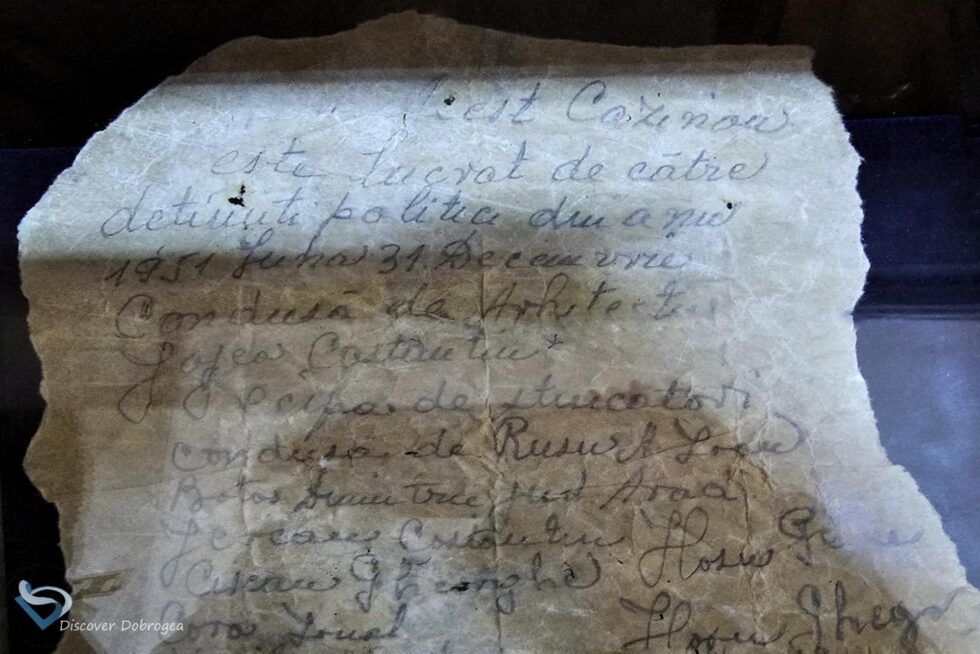 Acest Cazinou
este lucrat de către
detinuti politici din anu
1951 Luna 31 Decemvrie
Condusă de Arhitectu
Costantin
Ecipa de stucatori
condusă de Rusu A Ioan
Botos Dumitru jud Arad
Costantin Hosu
Gheorghe
Ionel Hosu
Discover Dobrogea